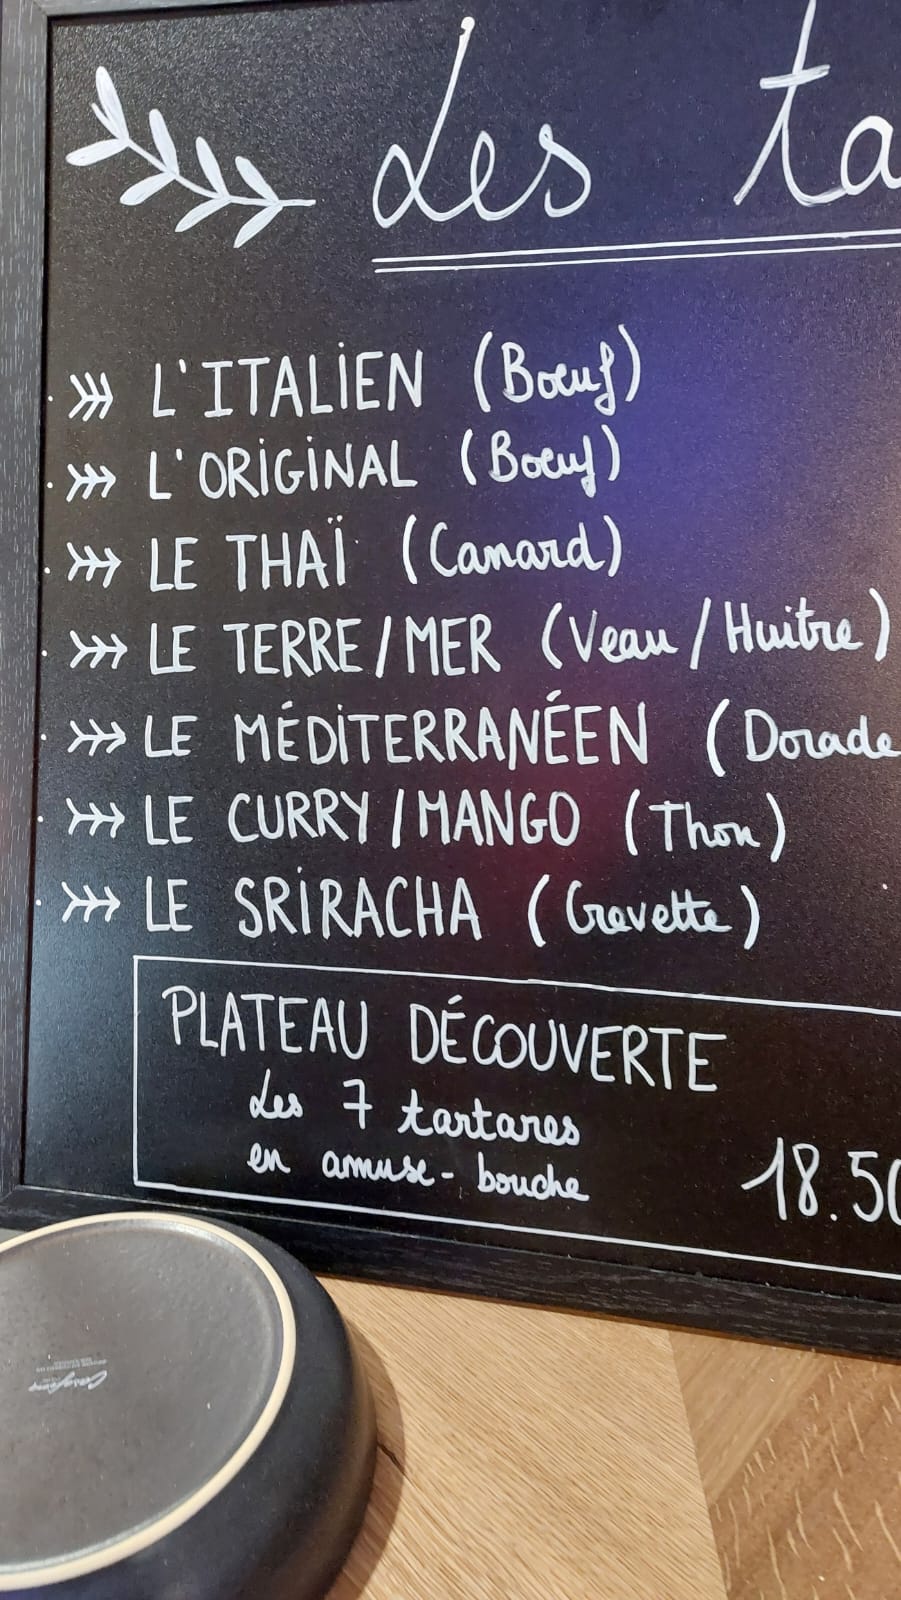 Les ta
L'ITALIEN (Boeuf)
L'ORIGINAL (Boeuf)
LE THAÏ (Canard)
LE TERRE/MER (Veau/Huitre)
LE MÉDITERRANÉEN (Dorade
LE CURRY/MANGO (Thon)
LE SRIRACHA (Crevette)
PLATEAU DÉCOUVERTE
Les 7 tartares
en amuse-bouche
18.50